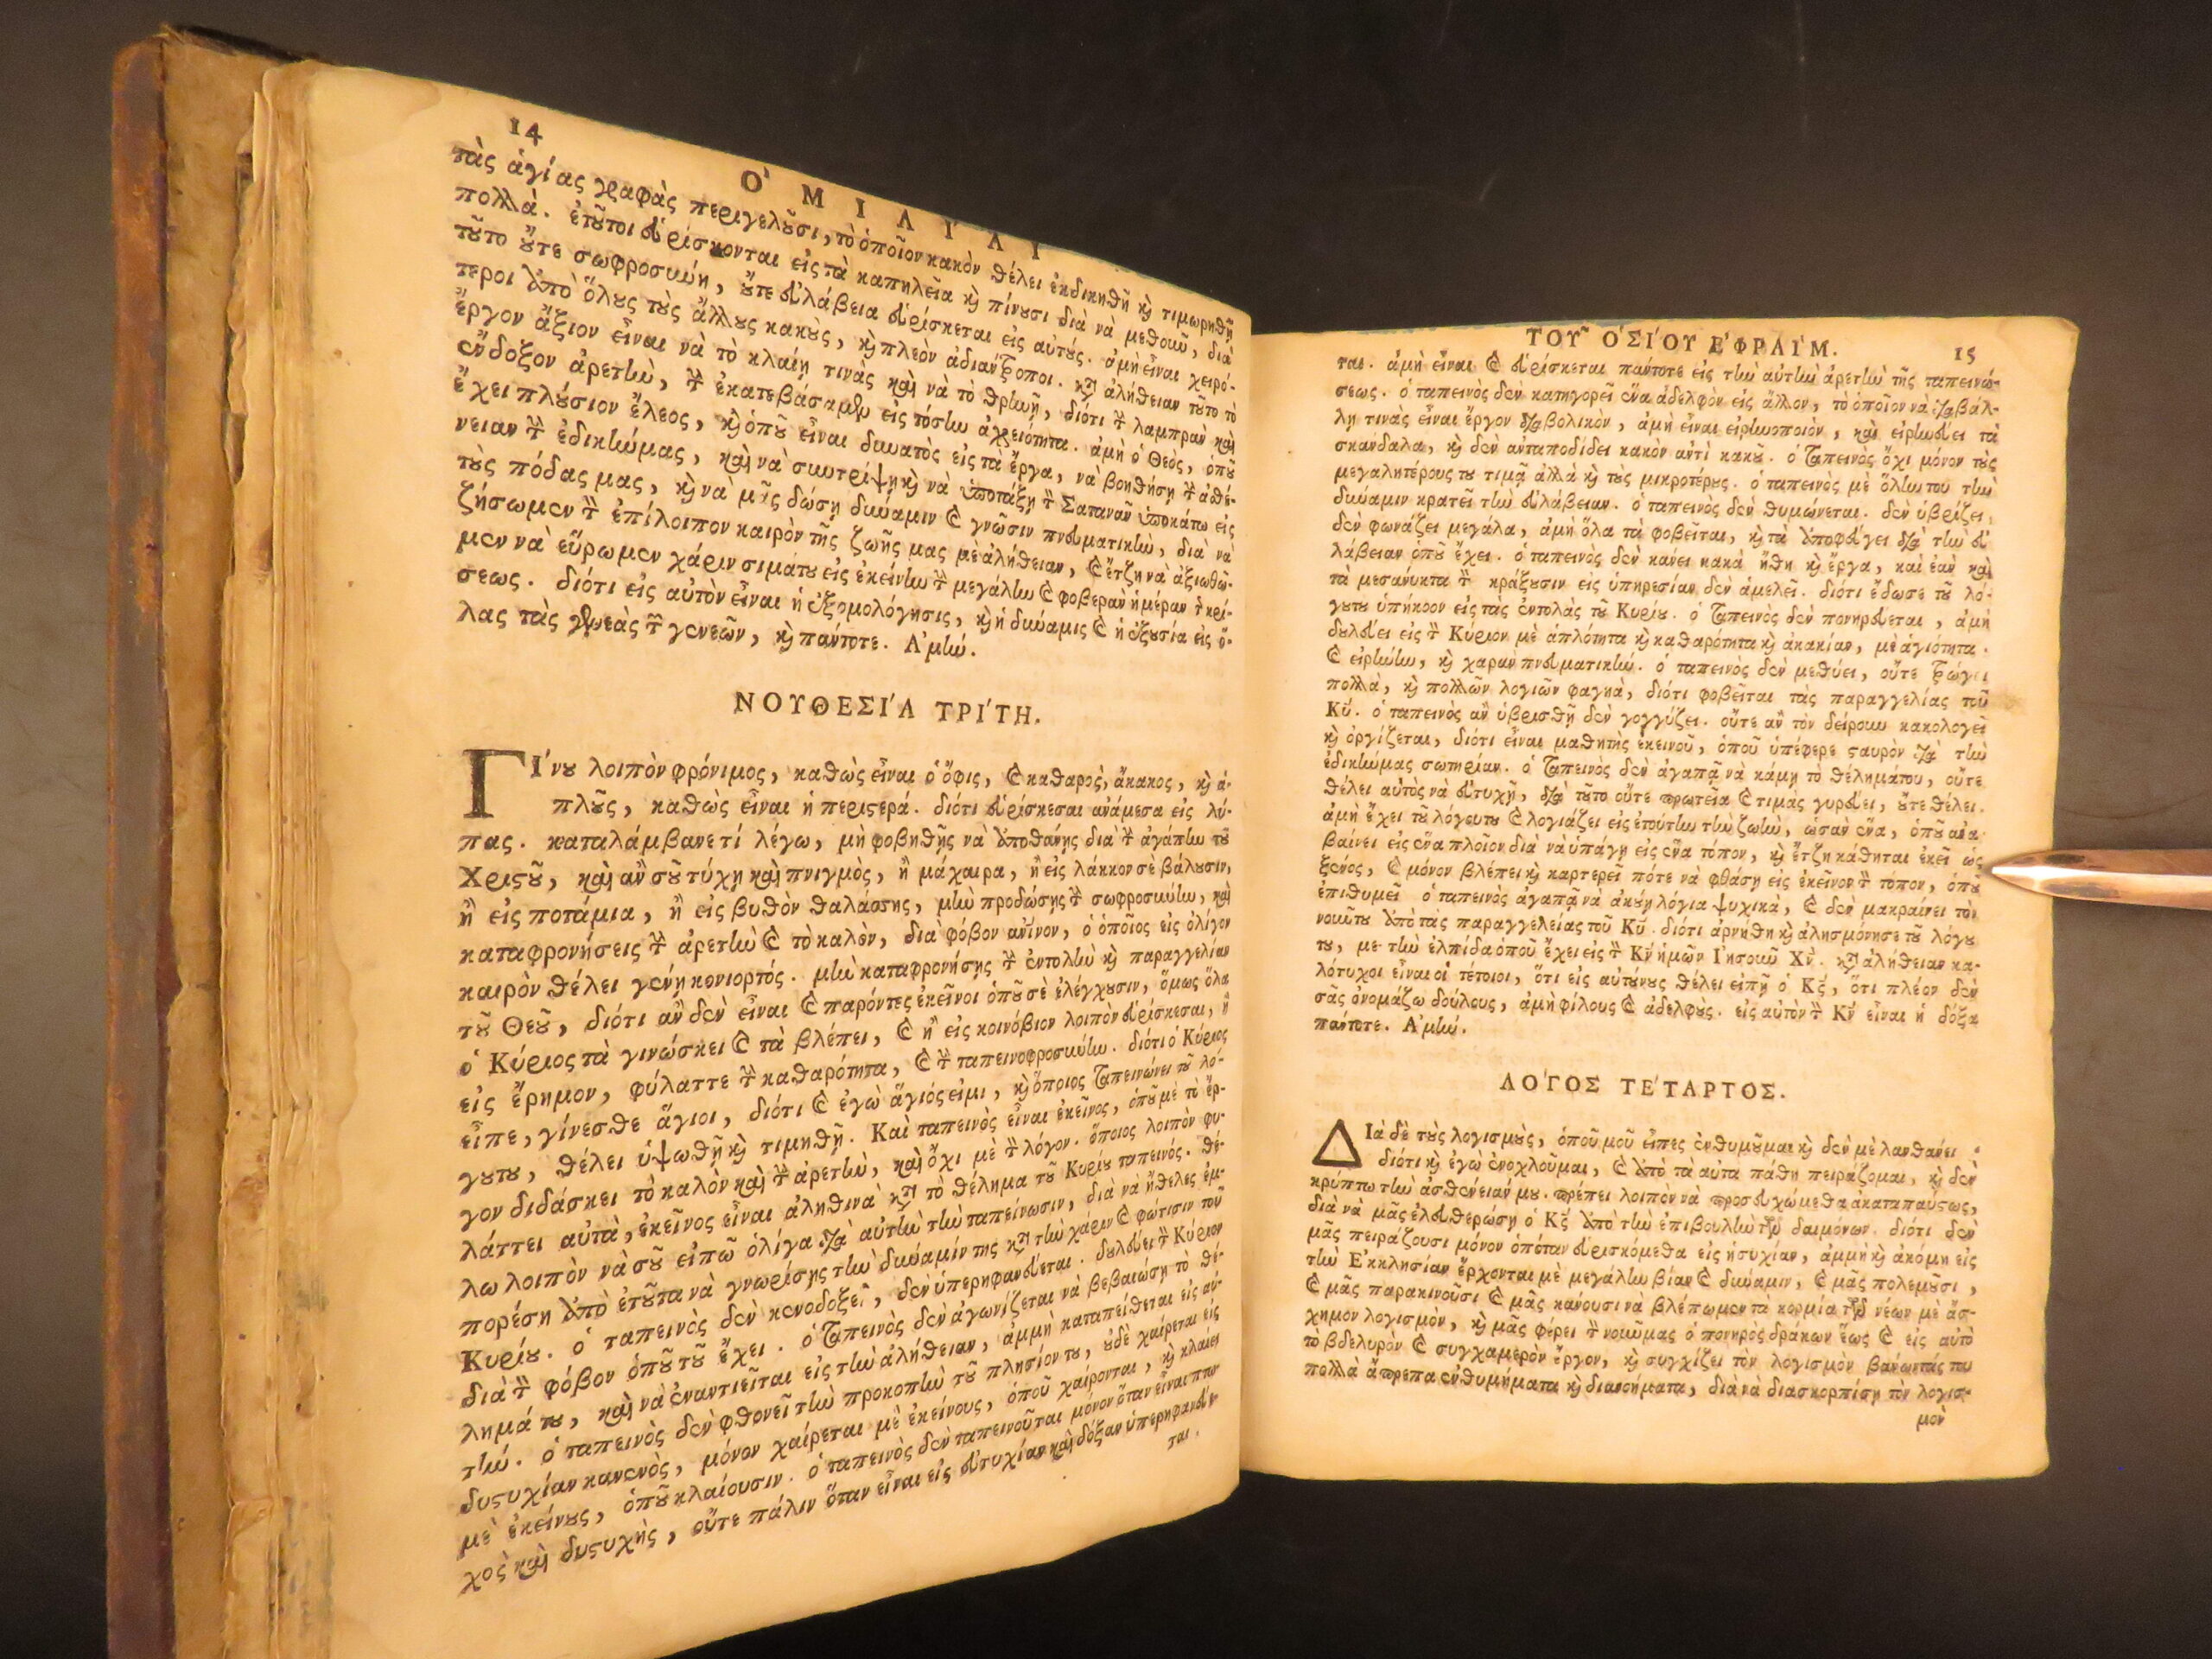 14
Ὁ ΜΙΛΙΑΙ
τὰς ἁγίας γραφὰς περιγελοῦσι, τὸ ὁποῖον κακὸν θέλει ἐκδικηθῆ καὶ τιμωρηθῆ
πολλά. ἐτοῦτοι εὑρίσκονται εἰς τὰ καπηλεῖα καὶ πίνουσι διὰ νὰ μεθοῦν, διὰ
τοῦτο οὔτε σωφροσύνη, οὔτε εὐλάβεια εὑρίσκεται εἰς αὐτούς. ἀμὴ εἶναι χειρό-
τεροι ἀπὸ ὅλους τοὺς ἄλλους κακοὺς, καὶ πλεὸν ἀδιάντροποι. κατὰ ἀλήθειαν τοῦτο τὸ
ἔργον ἄξιον εἶναι νὰ τὸ κλαίη τινὰς καὶ νὰ τὸ θρηνῆ, διότι τὴν λαμπρὰν καὶ
ἔνδοξον ἀρετὴν, τὴν ἐκατεβάσαμεν εἰς τόσην ἀχρειότητα. ἀμὴ ὁ Θεὸς, ὁποῦ
ἔχει πλούσιον ἔλεος, καὶ ὁποῦ εἶναι δυνατὸς εἰς τὰ ἔργα, νὰ βοηθήση τὴν ἀσθέ-
νειαν τὴν ἐδικήν μας, καὶ νὰ συντρίψη καὶ νὰ ὑποτάξη τὸν Σατανᾶν ὑποκάτω εἰς
τοὺς πόδας μας, καὶ νὰ μᾶς δώση δύναμιν καὶ γνῶσιν πνευματικὴν, διὰ νὰ
ζήσωμεν τὸν ἐπίλοιπον καιρὸν τῆς ζωῆς μας μὲ ἀλήθειαν, καὶ ἔτζη νὰ ἀξιωθῶ-
μεν νὰ εὕρωμεν χάριν σιμάτου εἰς ἐκείνην τὴν μεγάλην καὶ φοβερὰν ἡμέραν τῆς κρί-
σεως. διότι εἰς αὐτὸν εἶναι ἡ ἐξομολόγησις, καὶ ἡ δύναμις καὶ ἡ ἐξουσία εἰς ὅ-
λας τὰς γενεὰς τῶν γενεῶν, καὶ πάντοτε. Ἀμήν.
ΝΟΥΘΕΣΙΆ ΤΡΙΤΗ.
ΓΊνου λοιπὸν φρόνιμος, καθὼς εἶναι ὁ ὄφις, καὶ καθαρὸς, ἄκακος, καὶ ἁ-
πλοῦς, καθὼς εἶναι ἡ περιστερά. διότι εὑρίσκεσαι ἀνάμεσα εἰς λύ-
πας. καταλάμβανε τί λέγω, μὴ φοβηθῆς νὰ ἀποθάνης διὰ τὴν ἀγάπην τοῦ
Χριστοῦ, καὶ ἂν σοῦ τύχη καὶ πνιγμὸς, ἢ μάχαιρα, ἢ εἰς λάκκον σὲ βάλουσιν,
ἢ εἰς ποτάμια, ἢ εἰς βυθὸν θαλάσσης, μὴν προδώσης τὴν σωφροσύνην, καὶ
καταφρονήσεις τὴν ἀρετὴν καὶ τὸ καλὸν, διὰ φόβον ἀνθρώπινον, ὁ ὁποῖος εἰς ὀλίγον
καιρὸν θέλει γένη κονιορτός. μὴν καταφρονήσης τὴν ἐντολὴν καὶ παραγγελίαν
τοῦ Θεοῦ, διότι ἂν δὲν εἶναι καὶ παρόντες ἐκεῖνοι ὁποῦ σὲ ἐλέγχουσιν, ὅμως ὅλα
ὁ Κύριος τὰ γινώσκει καὶ τὰ βλέπει, καὶ ἢ εἰς κοινόβιον λοιπὸν εὑρίσκεσαι, ἢ
εἰς ἔρημον, φύλαττε τὴν καθαρότητα, καὶ τὴν ταπεινοφροσύνην. διότι ὁ Κύριος
εἶπε, γίνεσθε ἅγιοι, διότι καὶ ἐγὼ ἅγιός εἰμι, καὶ ὅποιος ταπεινώνει τοῦ λό-
γουτου, θέλει ὑψωθῆ καὶ τιμηθῆ. Καὶ ταπεινὸς εἶναι ἐκεῖνος, ὁποῦ μὲ τὸ ἔρ-
γον διδάσκει τὸ καλὸν καὶ τὴν ἀρετὴν, καὶ ὄχι μὲ τὸν λόγον. ὅποιος λοιπὸν φυ-
λάττει αὐτὰ, ἐκεῖνος εἶναι ἀληθινὰ κατὰ τὸ θέλημα τοῦ Κυρίου ταπεινός. θέ-
λω λοιπὸν νὰ σοῦ εἰπῶ ὀλίγα διὰ αὐτὴν τὴν ταπείνωσιν, διὰ νὰ ἤθελες ἐμ-
πορέση ἀπὸ ἐτοῦτα νὰ γνωρίσης τὴν δύναμίν της κατὰ τὴν χάριν καὶ φώτισιν τοῦ
Κυρίου. ὁ ταπεινὸς δὲν κενοδοξεῖ, δὲν ὑπερηφανεύεται. δουλεύει τὸν Κύριον
διὰ τὸν φόβον ὁποῦ τοῦ ἔχει. ὁ ταπεινὸς δὲν ἀγωνίζεται νὰ βεβαιώση τὸ θέ-
λημά του, καὶ νὰ ἐναντιεῖται εἰς τὴν ἀλήθειαν, ἀμμὴ καταπείθεται εἰς αὐ-
τήν. ὁ ταπεινὸς δὲν φθονεῖ τὴν προκοπὴν τοῦ πλησίον του, οὐδὲ χαίρεται εἰς
δυστυχίαν κανενὸς, μόνον χαίρεται μὲ ἐκείνους, ὁποῦ χαίρονται, καὶ κλαίει
μὲ ἐκείνους, ὁποῦ κλαίουσιν. ὁ ταπεινὸς δὲν ταπεινοῦται μόνον ὅταν εἶναι πτω
χὸς καὶ δυστυχὴς, οὔτε πάλιν ὅταν εἶναι εἰς εὐτυχίαν καὶ δόξαν ὑπερηφανεύε-
ται.
ΤΟΥ͂ ὉΣΙΟΥ ἘΦΡΑΪΜ.
15
ται. ἀμὴ εἶναι καὶ εὑρίσκεται πάντοτε εἰς τὴν αὐτὴν ἀρετὴν τῆς ταπεινώ-
σεως. ὁ ταπεινὸς δὲν κατηγορεῖ ἕνα ἀδελφὸν εἰς ἄλλον, τὸ ὁποῖον νὰ διαβάλ-
λη τινὰς εἶναι ἔργον διαβολικὸν, ἀμὴ εἶναι εἰρηνοποιὸν, καὶ εἰρηνεύει τὰ
σκανδαλα, καὶ δὲν ἀνταποδίδει κακὸν ἀντὶ κακοῦ. ὁ ταπεινὸς ὄχι μόνον τοὺς
μεγαλητέρους του τιμᾷ ἀλλὰ καὶ τοὺς μικροτέρους. ὁ ταπεινὸς μὲ ὅλην του τὴν
δύναμιν κρατεῖ τὴν εὐλάβειαν. ὁ ταπεινὸς δὲν θυμώνεται. δὲν ὑβρίζει,
δὲν φωνάζει μεγάλα, ἀμὴ ὅλα τὰ φοβεῖται, καὶ τὰ ἀποφεύγει διὰ τὴν εὐ
λάβειαν ὁποῦ ἔχει. ὁ ταπεινὸς δὲν κάνει κακὰ ἤθη καὶ ἔργα, καὶ ἐὰν καὶ
τὰ μεσάνυκτα τὸν κράξουσιν εἰς ὑπηρεσίαν δὲν ἀμελεῖ. διότι ἔδωσε τοῦ λό-
γουτου ὑπήκοον εἰς τὰς ἐντολὰς τοῦ Κυρίου. ὁ ταπεινὸς δὲν πονηρεύεται, ἀμὴ
δουλεύει εἰς τὸν Κύριον μὲ ἁπλότητα καὶ καθαρότητα καὶ ἀκακίαν, μὲ ἁγιότητα.
καὶ εἰρήνην, καὶ χαρὰν πνευματικήν. ὁ ταπεινὸς δὲν μεθύει, οὔτε τρώγει
πολλὰ, καὶ πολλῶν λογιῶν φαγητὰ, διότι φοβεῖται τὰς παραγγελίας τοῦ
Κυ̃. ὁ ταπεινὸς ἂν ὑβρισθῆ δὲν γογγύζει. οὔτε ἂν τὸν δείρουν κακολογεῖ
καὶ ὀργίζεται, διότι εἶναι μαθητὴς ἐκεινοῦ, ὁποῦ ὑπέφερε σταυρὸν διὰ τὴν
ἐδικήνμας σωτηρίαν. ὁ ταπεινὸς δὲν ἀγαπᾷ νὰ κάμη τὸ θέλημάτου, οὔτε
θέλει αὐτὸς νὰ εὐτυχῆ, διὰ τοῦτο οὔτε πρωτεῖα καὶ τιμὰς γυρεύει, οὔτε θέλει.
ἀμὴ ἔχει τοῦ λόγουτου καὶ λογιάζει εἰς ἐτούτην τὴν ζωὴν, ὡσὰν ἕνα, ὁποῦ ἀνα
βαίνει εἰς ἕνα πλοῖον διὰ νὰ ὑπάγη εἰς ἕνα τόπον, καὶ ἔτζη κάθηται ἐκεῖ ὡς
ξένος, καὶ μόνον βλέπει καὶ καρτερεῖ πότε νὰ φθάση εἰς ἐκεῖνον τὸν τόπον, ὁποῦ
ἐπιθυμεῖ ὁ ταπεινὸς ἀγαπᾷ νὰ ἀκούη λόγια ψυχικὰ, καὶ δὲν μακραίνει τὸν
νοῦντου ἀπὸ τὰς παραγγελείας τοῦ Κυ̃. διότι ἀρνήθη καὶ ἀλησμόνησε τοῦ λόγου
του, με τὴν ἐλπίδα ὁποῦ ἔχει εἰς τὸν Κν̃ ἡμῶν Ἰησοῦν Χν̃. κατὰ ἀλήθειαν κα-
λότυχοι εἶναι οἱ τέτοιοι, ὅτι εἰς αὐτούνους θέλει εἰπῆ ὁ Κς̃, ὅτι πλέον δὲν
σᾶς ὀνομάζω δούλους, ἀμὴ φίλους καὶ ἀδελφούς. εἰς αὐτὸν τὸν Κν̃ εἶναι ἡ δόξα
πάντοτε. Ἀμήν.
ΛΟΓΟΣ ΤΕΤΑΡΤΟΣ.
ΔΙὰ δὲ τοὺς λογισμοὺς, ὁποῦ μοῦ εἶπες ἐνθυμοῦμαι καὶ δὲν μὲ λανθάνει.
διότι καὶ ἐγὼ ἐνοχλοῦμαι, καὶ ἀπὸ τὰ αὐτὰ πάθη πειράζομαι, καὶ δὲν
κρύπτω τὴν ἀσθένειάν μου. πρέπει λοιπὸν νὰ προσευχώμεθα ἀκαταπαύστως,
διὰ νὰ μᾶς ἐλευθερώση ὁ Κς̃ ἀπὸ τὴν ἐπιβουλὴν τῶν δαιμόνων. διότι δὲν
μᾶς πειράζουσι μόνον ὁπόταν εὑρισκόμεθα εἰς ἡσυχίαν, ἀμμὴ καὶ ἀκόμη εἰς
τὴν Ἐκκλησίαν ἔρχονται μὲ μεγάλην βίαν καὶ δύναμιν, καὶ μᾶς πολεμοῦσι,
καὶ μᾶς παρακινοῦσι καὶ μᾶς κάνουσι νὰ βλέπωμεν τὰ κορμία τῶν νέων μὲ ἄσ-
χημον λογισμὸν, καὶ μᾶς φέρει τὸν νοῦνμας ὁ πονηρὸς δράκων ἕως καὶ εἰς αὐτὸ
τὸ βδελυρὸν καὶ συγχαμερὸν ἔργον, καὶ συγχίζει τὸν λογισμὸν βάνωντάς του
πολλὰ ἄπρεπα ἐνθυμήματα καὶ διανοήματα, διὰ νὰ διασκορπίση τὸν λογισ-
μὸν